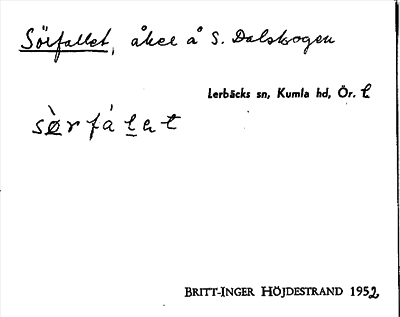 Sörfallet, åker å S. Dalskogen
Lerbäcks sn, Kumla hd, Ör. l
sø̀rfálat
BRITT-INGER HÖJDESTRAND 1952